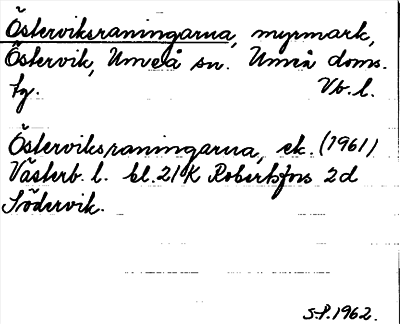 Österviksraningarna, myrmark,
Östervik, Umeå sn. Umeå doms.
tg. Vb. l.
Österviksraningarna, ek. (1961)
Västerb. l. bl. 21 K Robertsfors 2d
Södervik.
S.P. 1962.